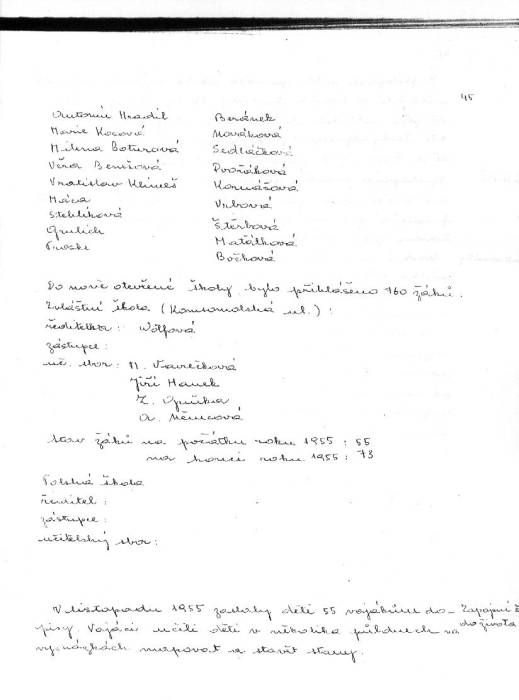 45
Antonín Hradil Beránek
Marie Kocová Nováková
Milena Boturová Sedláčková
Věra Benešová Dvořáková
Vratislav Klimeš Kornášová
Máca Vrbová
Stehlíková Štěrbová
Grulich Matálková
Proske Bočková
Do nově otevřené školy bylo přihlášeno 760 žáků.
Zvláštní škola (Komsomolská ul.) :
ředitelka : Wolfová
zástupce :
uč. sbor : N. Vavrečková
Jiří Hanek
Z. Opučka
A. Němcová
stav žáků na počátku roku 1955 : 55
na konci roku 1955 : 73
Polská škola
ředitel :
zástupce :
učitelský sbor :
V listopadu 1955 zaslaly děti 55 vojákům do- Zapojení ž
pisy. Vojáci učili děti v několika půldnech na do života
vycházkách mapovat a stavět stany.